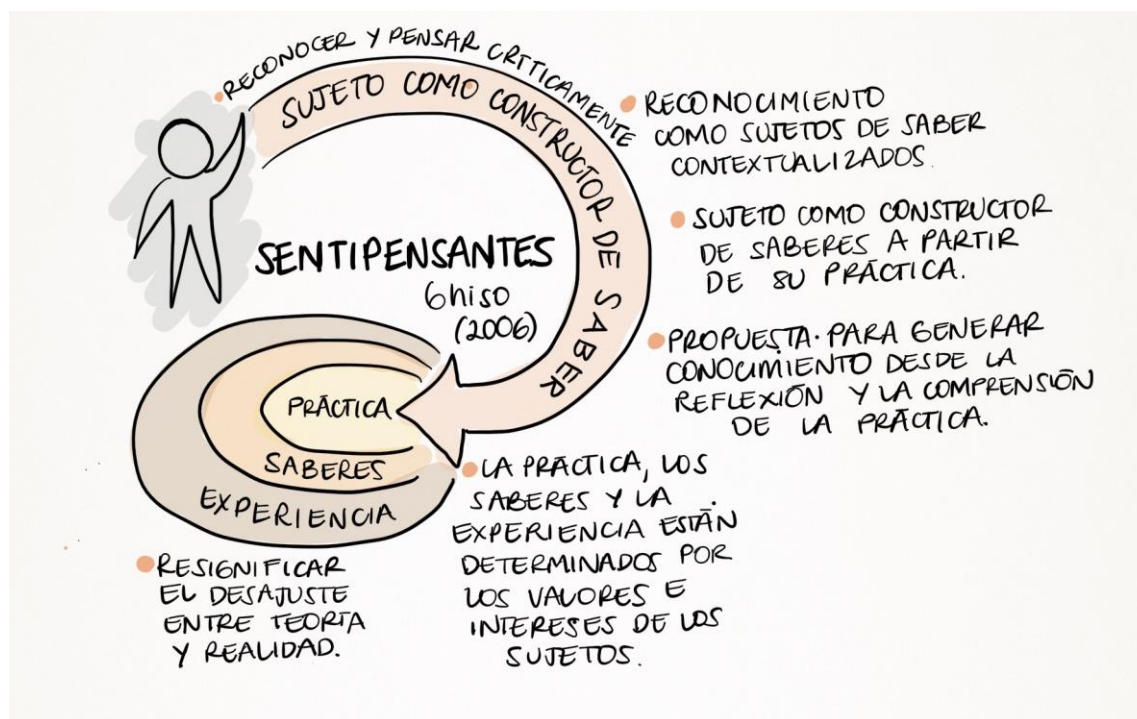 RECONOCER Y PENSAR CRÍTICAMENTE
SUJETO COMO CONSTRUCTOR DE SABER
SENTIPENSANTES
Ghiso
(2006)
PRÁCTICA
SABERES
EXPERIENCIA
RECONOCIMIENTO
COMO SUJETOS DE SABER
CONTEXTUALIZADOS.
SUJETO COMO CONSTRUCTOR
DE SABERES A PARTIR
DE SU PRÁCTICA.
PROPUESTA. PARA GENERAR
CONOCIMIENTO DESDE LA
REFLEXIÓN Y LA COMPRENSIÓN
DE LA PRÁCTICA.
LA PRÁCTICA, LOS
SABERES Y LA
EXPERIENCIA ESTÁN
DETERMINADOS POR
LOS VALORES E
INTERESES DE LOS
SUJETOS.
RESIGNIFICAR
EL DESAJUSTE
ENTRE TEORÍA
Y REALIDAD.